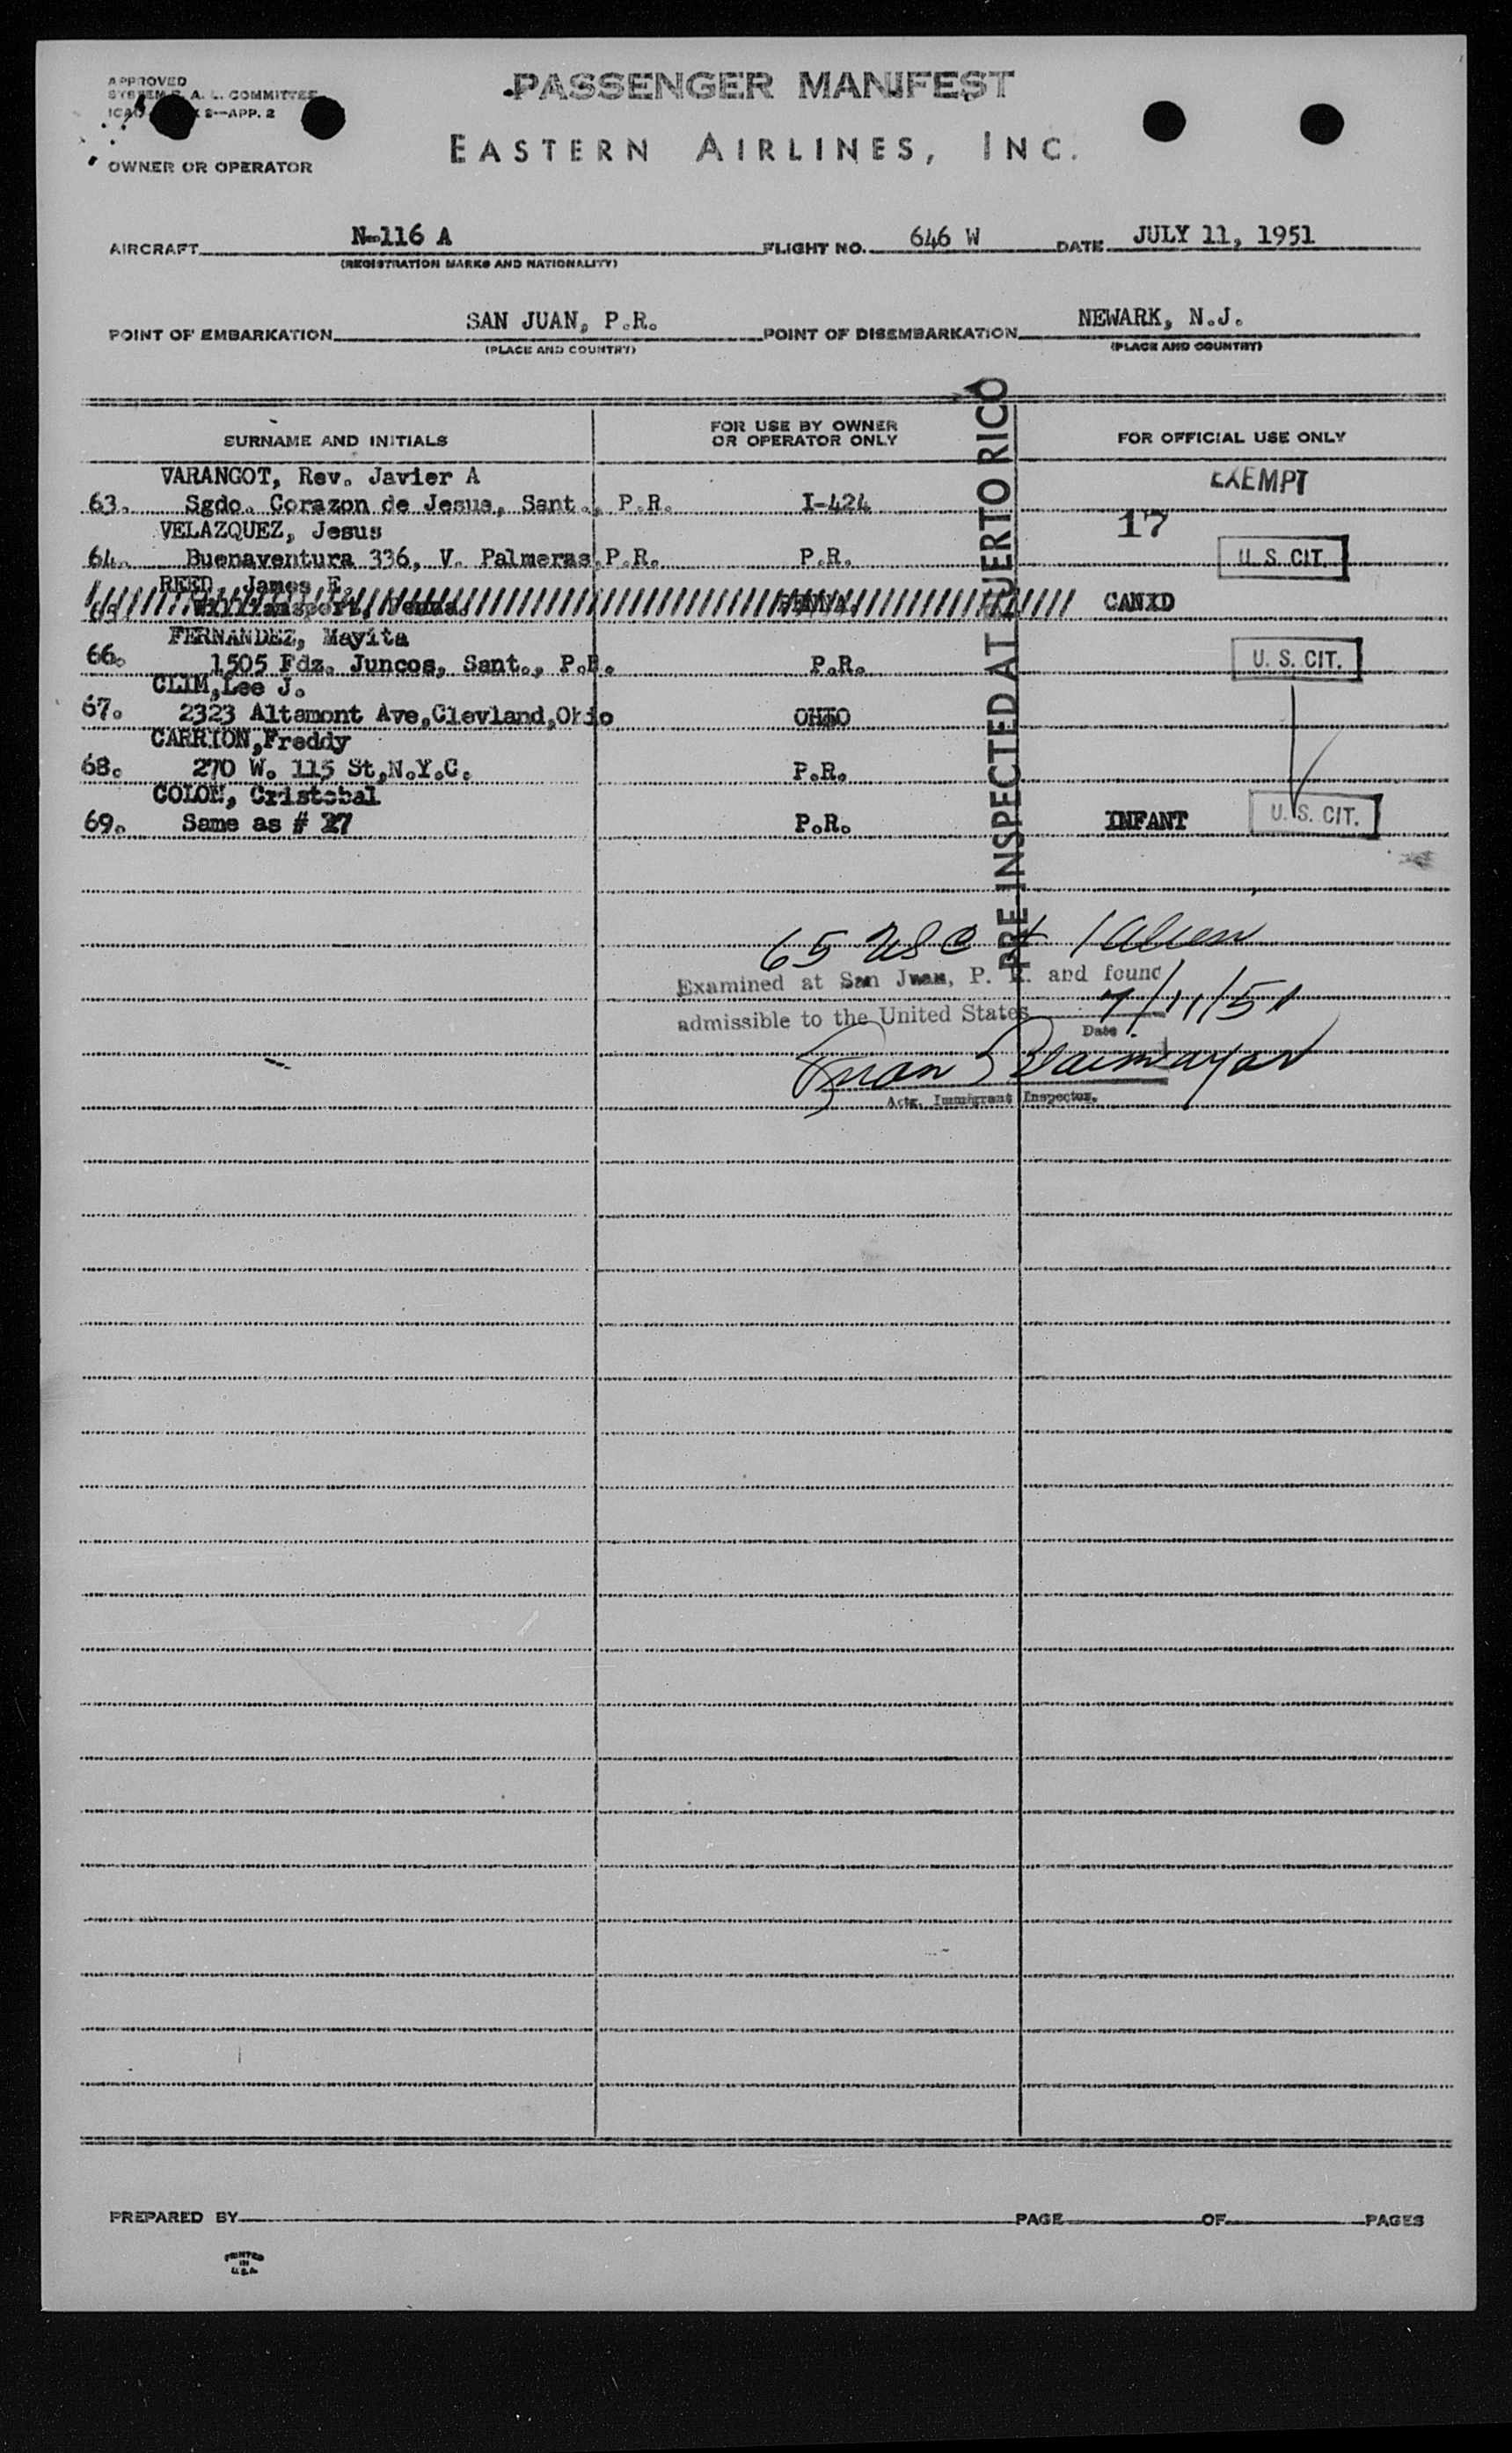 APPROVED
A. L. COMMITTEE
—APP. 2
PASSENGER MANIFEST
EASTERN AIRLINES, INC.
OWNER OR OPERATOR
AIRCRAFT N-116 A FLIGHT NO. 646 W DATE JULY 11, 1951
(REGISTRATION MARKS AND NATIONALITY)
POINT OF EMBARKATION SAN JUAN, P.R. POINT OF DISEMBARKATION NEWARK, N.J.
(PLACE AND COUNTRY) (PLACE AND COUNTRY)
SURNAME AND INITIALS FOR USE BY OWNER OR OPERATOR ONLY FOR OFFICIAL USE ONLY
PRE-INSPECTED AT PUERTO RICO
VARANGOT, Rev. Javier A EXEMPT
63. Sgdo. Corazon de Jesus, Sant., P.R. I-424
VELAZQUEZ, Jesus 17
64. Buenaventura 336, V. Palmeras, P.R. P.R. U. S. CIT.
REED, James E.
65. Williamsport, Penna. CANXD
FERNANDEZ, Mayita
66. 1505 Fdz. Juncos, Sant., P.R. P.R. U. S. CIT.
CLIM, Lee J.
67. 2323 Altamont Ave, Clevland, Ohio OHIO
CARRION, Freddy
68. 270 W. 115 St, N.Y.C. P.R.
COLON, Cristobal
69. Same as # 27 P.R. INFANT U. S. CIT.
65 USC + 1 Alien
Examined at San Juan, P. R. and found
admissible to the United States 7/11/51
Date
Juan
Actg. Immigrant Inspector.
PREPARED BY PAGE OF PAGES
PRINTED
IN
U.S.A.